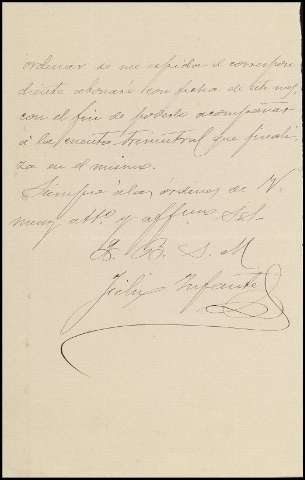 ordenar se me espida el correspon
diente abonaré con fecha de este mes,
con el fin de poderlo acompañar
á la cuenta trimestral que finali-
za en el mismo.
Siempre á las órdenes de V.
muy att.º y affmo S.S.
Q. B. S. M
Felix Infante